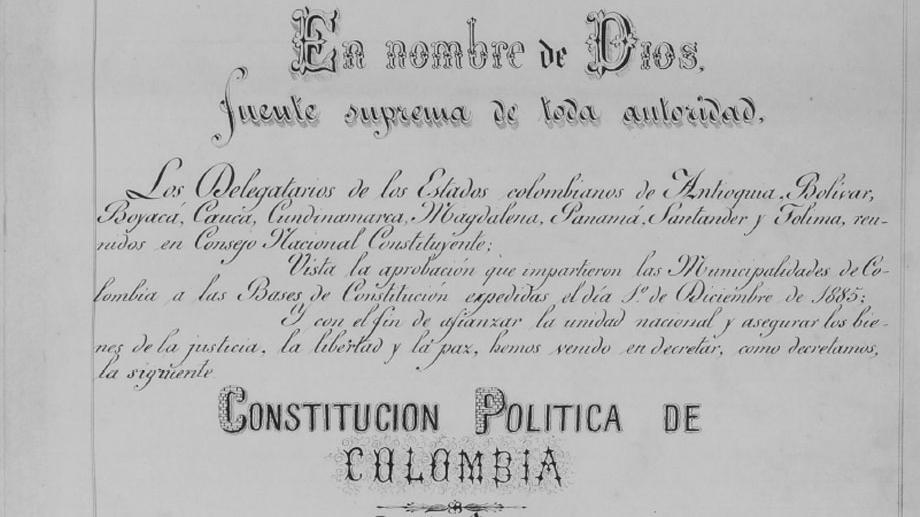 En nombre de Dios,
fuente suprema de toda autoridad,
Los Delegatarios de los Estados colombianos de Antioquia, Bolívar,
Boyacá, Cauca, Cundinamarca, Magdalena, Panamá, Santander y Tolima, reu-
nidos en Consejo Nacional Constituyente;
Vista la aprobación que impartieron las Municipalidades de Co-
lombia a las Bases de Constitución expedidas el día 1º. de Diciembre de 1885;
Y con el fin de afianzar la unidad nacional y asegurar los bie-
nes de la justicia, la libertad y la paz, hemos venido en decretar, como decretamos,
la siguiente
CONSTITUCION POLITICA DE
COLOMBIA